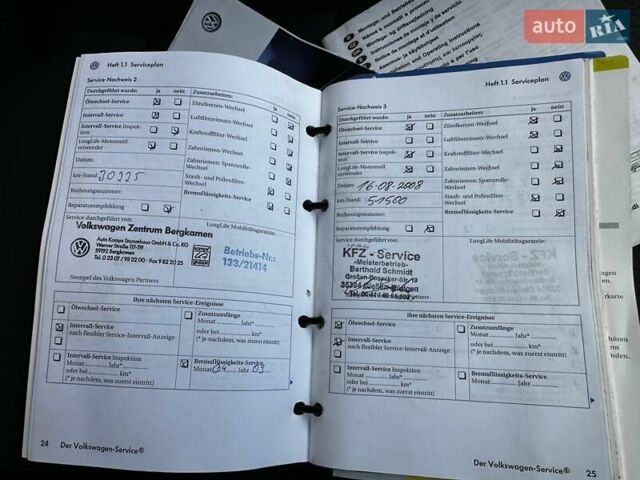 auto RIA.com
Heft 1.1 Serviceplan
Service-Nachweis 2
Durchgeführt wurde: ja nein Zusatzarbeiten: Ja nein
Ölwechsel-Service Zündkerzen-Wechsel
Intervall-Service Luftfiltereinsatz-Wechsel
Intervall-Service Inspektion Kraftstofffilter-Wechsel
LongLife-Motorenöl verwendet Zahnriemen-Wechsel
Datum: Zahnriemen: Spannrolle-Wechsel
km-Stand: 30225 Staub- und Pollenfilter-Wechsel
Rechnungsnummer: Bremsflüssigkeits-Service
Reparaturempfehlung
Service durchgeführt von: LongLife Mobilitätsgarantie:
Volkswagen Zentrum Bergkamen
Auto Kamps Stonenhaus GmbH & Co. KG
Werner Straße 117-119
59192 Bergkamen
Tel. 0 23 07 / 98 22 00 · Fax 9 82 20 25
Betriebs-Nr.:
133/21414
Stempel des Volkswagen Partners
Ihre nächsten Service-Ereignisse
Ölwechsel-Service
Intervall-Service
nach flexibler Service-Intervall-Anzeige
Zusatzumfänge
Monat Jahr*
oder bei km
(* je nachdem, was zuerst eintritt)
Intervall-Service Inspektion
Monat Jahr*
oder bei km
(* je nachdem, was zuerst eintritt)
Bremsflüssigkeits-Service
Monat 04 Jahr 09
24 Der Volkswagen-Service®
Heft 1.1 Serviceplan
Service-Nachweis 3
Durchgeführt wurde: ja nein Zusatzarbeiten: Ja nein
Ölwechsel-Service Zündkerzen-Wechsel
Intervall-Service Luftfiltereinsatz-Wechsel
Intervall-Service Inspektion Kraftstofffilter-Wechsel
LongLife-Motorenöl verwendet Zahnriemen-Wechsel
Datum: 16.08.2008 Zahnriemen: Spannrolle-Wechsel
km-Stand: 51500 Staub- und Pollenfilter-Wechsel
Rechnungsnummer: Bremsflüssigkeits-Service
Reparaturempfehlung
Service durchgeführt von: LongLife Mobilitätsgarantie:
KFZ - Service
-Meisterbetrieb-
Berthold Schmidt
Ihre nächsten Service-Ereignisse
Ölwechsel-Service
Intervall-Service
nach flexibler Service-Intervall-Anzeige
Zusatzumfänge
Monat Jahr*
oder bei km
(* je nachdem, was zuerst eintritt)
Intervall-Service Inspektion
Monat Jahr*
oder bei km
(* je nachdem, was zuerst eintritt)
Bremsflüssigkeits-Service
Monat Jahr
Der Volkswagen-Service® 25